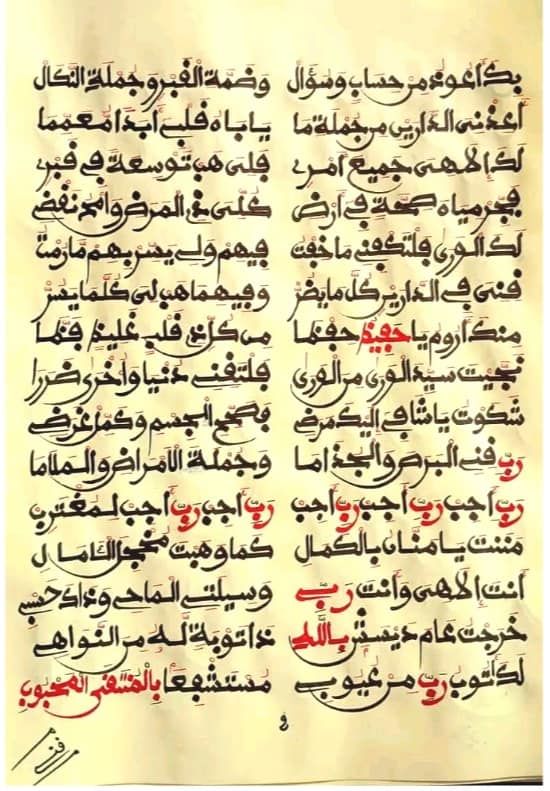 بك أعوذ من حساب وسؤال وضمة القبر وجملة النكال
أعذني الدارين من جملة ما يا باه قلبي أبدا معمما
لك إلاهي جميع أمري فلي هب توسعة في قبري
فجر مياه صحة في أرض كلي ذي المرض وامح نقض
لك الورى فلتكفني ما خفت فيهم ولي يسر بهم ما رمت
فني في الدارين كل ما يضر وفيهما هب لي كلما يسر
منك أروم يا حفيظ حفظا من كل ذي قلب غليظ فظا
نجيت سيد الورى من الورى فلتقني دنيا وأخرى ضررا
شكوت يا شافي إليك مرضي فصحح الجسم وكمل غرضي
رب قني البرص والجذاما وجملة الأمراض والملاما
رب أجب رب أجب رب أجب رب أجب رب أجب لمغترب
مننت يا منان بالكمال كما وهبت الكامل
أنت إلاهي وأنت ربي وسيلتي الماحي وذاك حسبي
خرجت عام ديسش بالله ذا توبة له من النواهي
لك أتوب رب من عيوبي مستشفعا بالمنتقى المحبوب